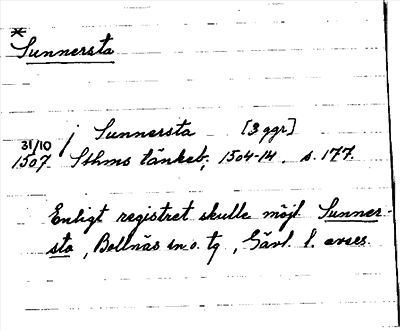 *
Sunnersta
j Sunnersta [3 ggr]
31/10
1507 Sthms tänkeb., 1504-14. s. 177.
Enligt registret skulle möjl. Sunner-
sta, Bollnäs sn o. tg, Gävl. l. avses.